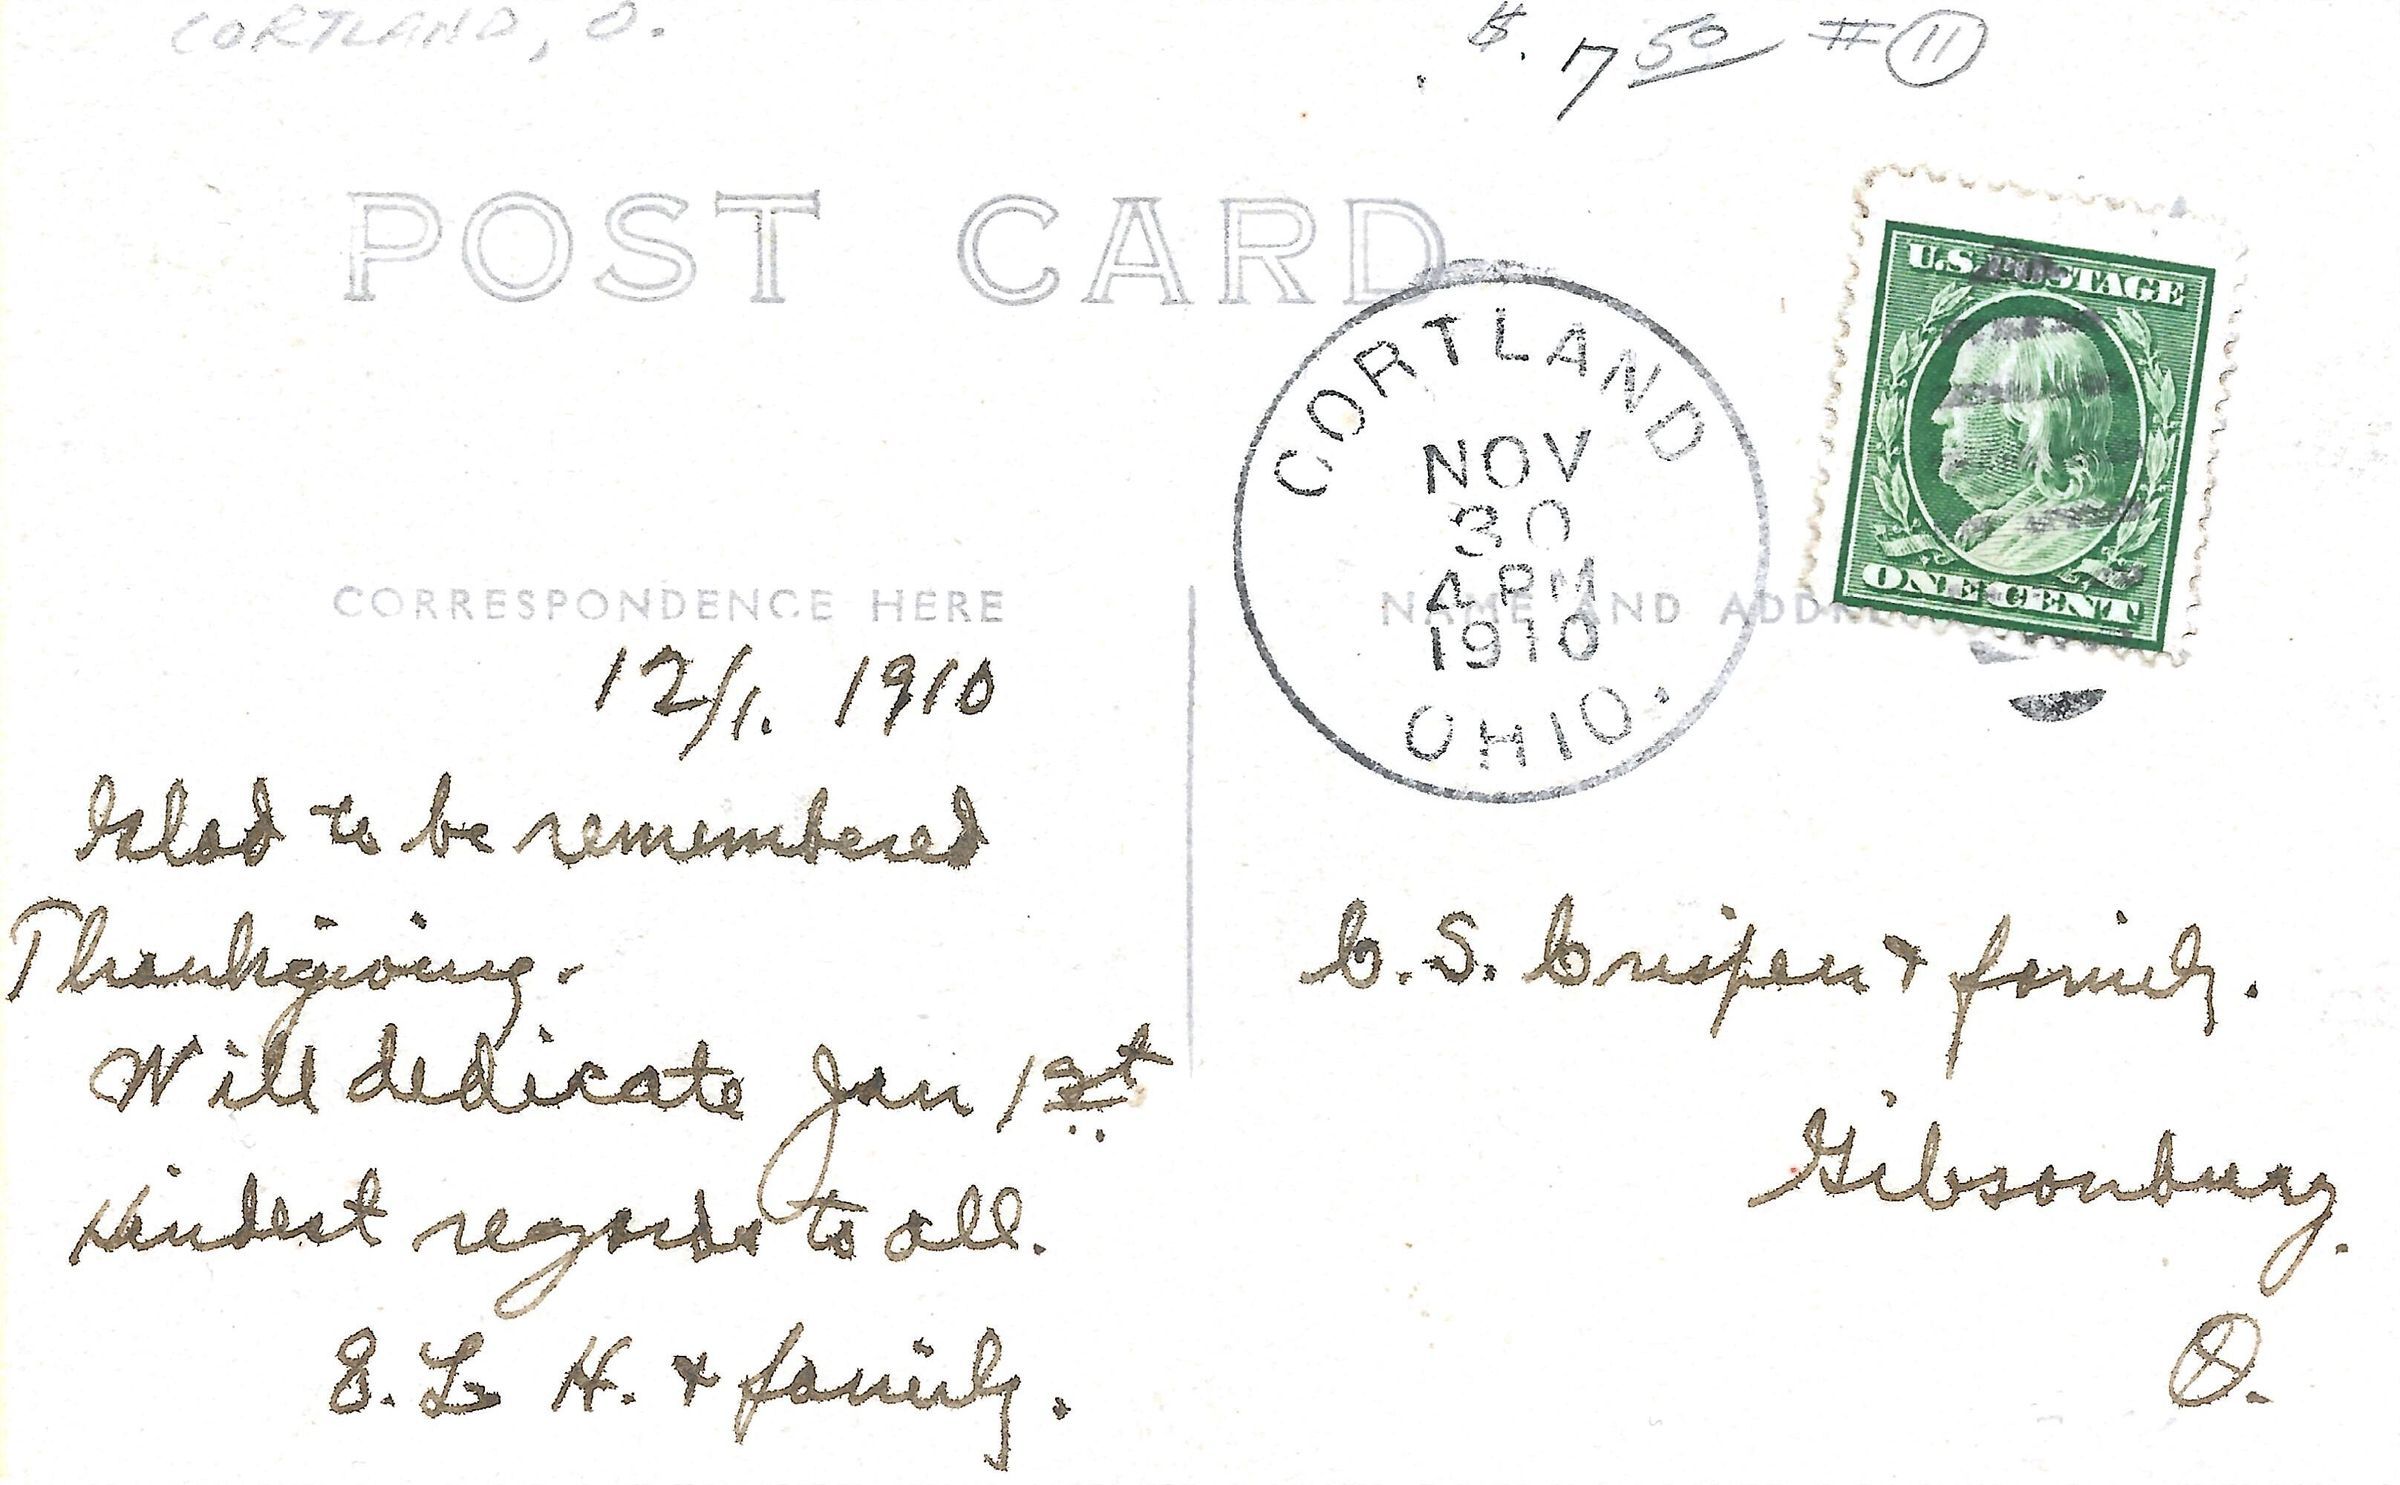 CORTLAND, O.
$. 7 50 # 11
POST CARD
U.S. POSTAGE
ONE CENT
CORTLAND
NOV
30
4 PM
1910
OHIO.
CORRESPONDENCE HERE
NAME AND ADDRE
12/1. 1910
Glad to be remembered
Thanksgiving.
Will dedicate Jan 1st
Kindest regards to all.
E. L. H. & family.
C. S. Crispen & family.
Gibsonburg.
O.